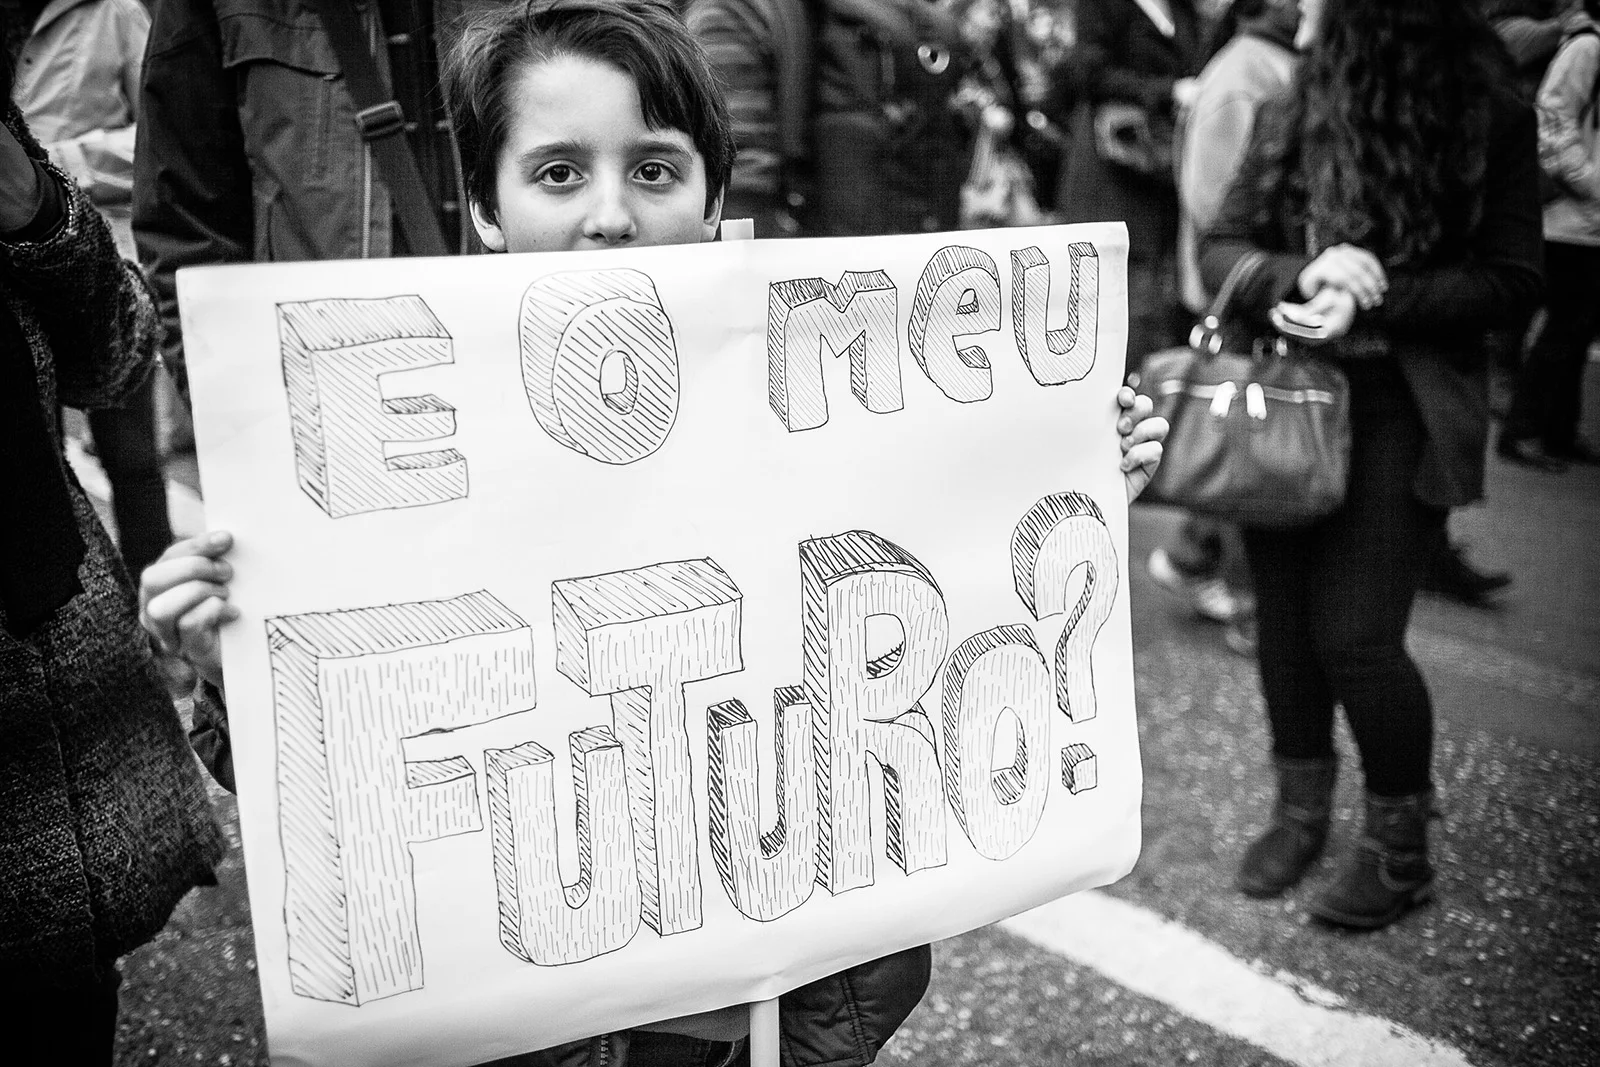 E O MeU
FuTuRo?